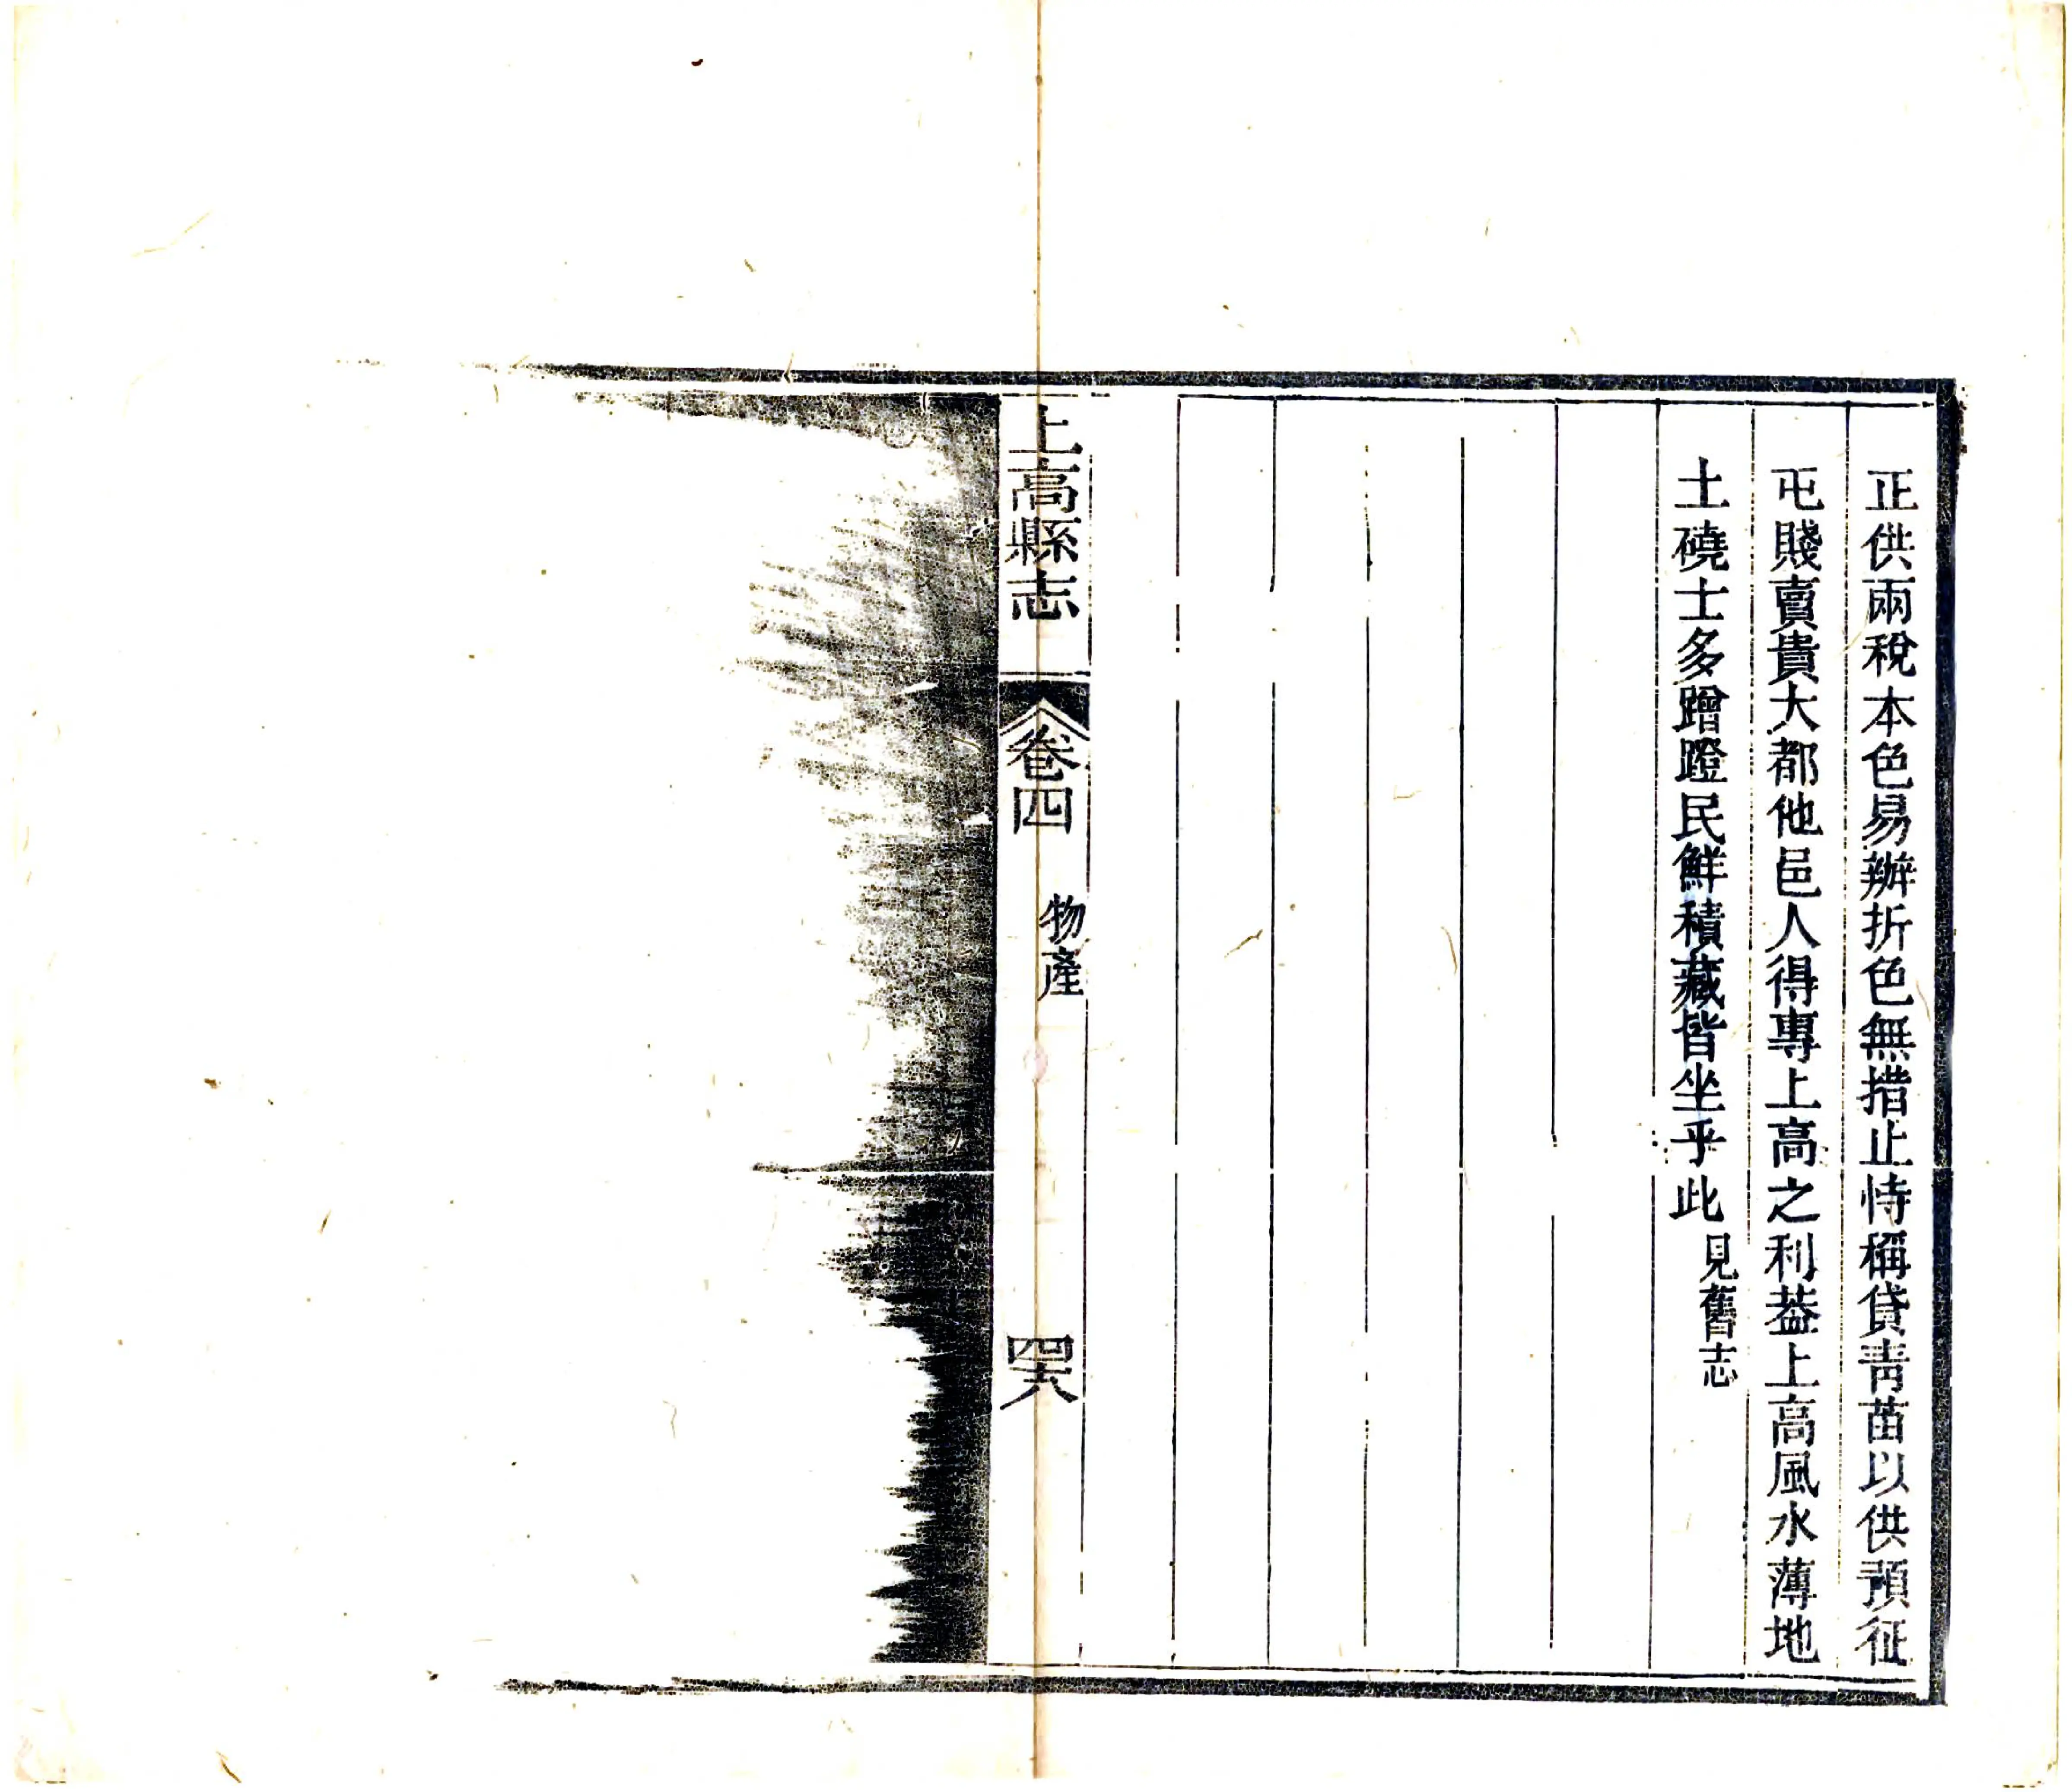 正供兩稅本色易辦折色無措止恃稱貸青苗以供預征
屯賤賣貴大都他邑人得專上高之利葢上高風水薄地
土磽士多蹭蹬民鮮積藏皆坐乎此見舊志
上高縣志
卷四
物產
四六